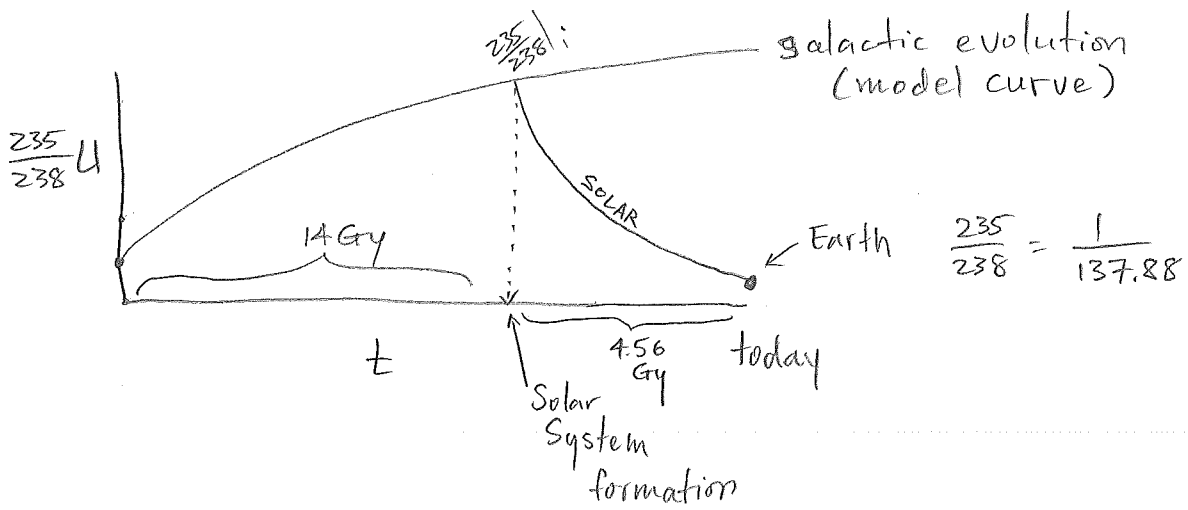 235/238)i
galactic evolution
(model curve)
235/238 U
SOLAR
14 Gy
Earth 235/238 = 1/137.88
t
4.56
Gy
today
Solar
System
formation